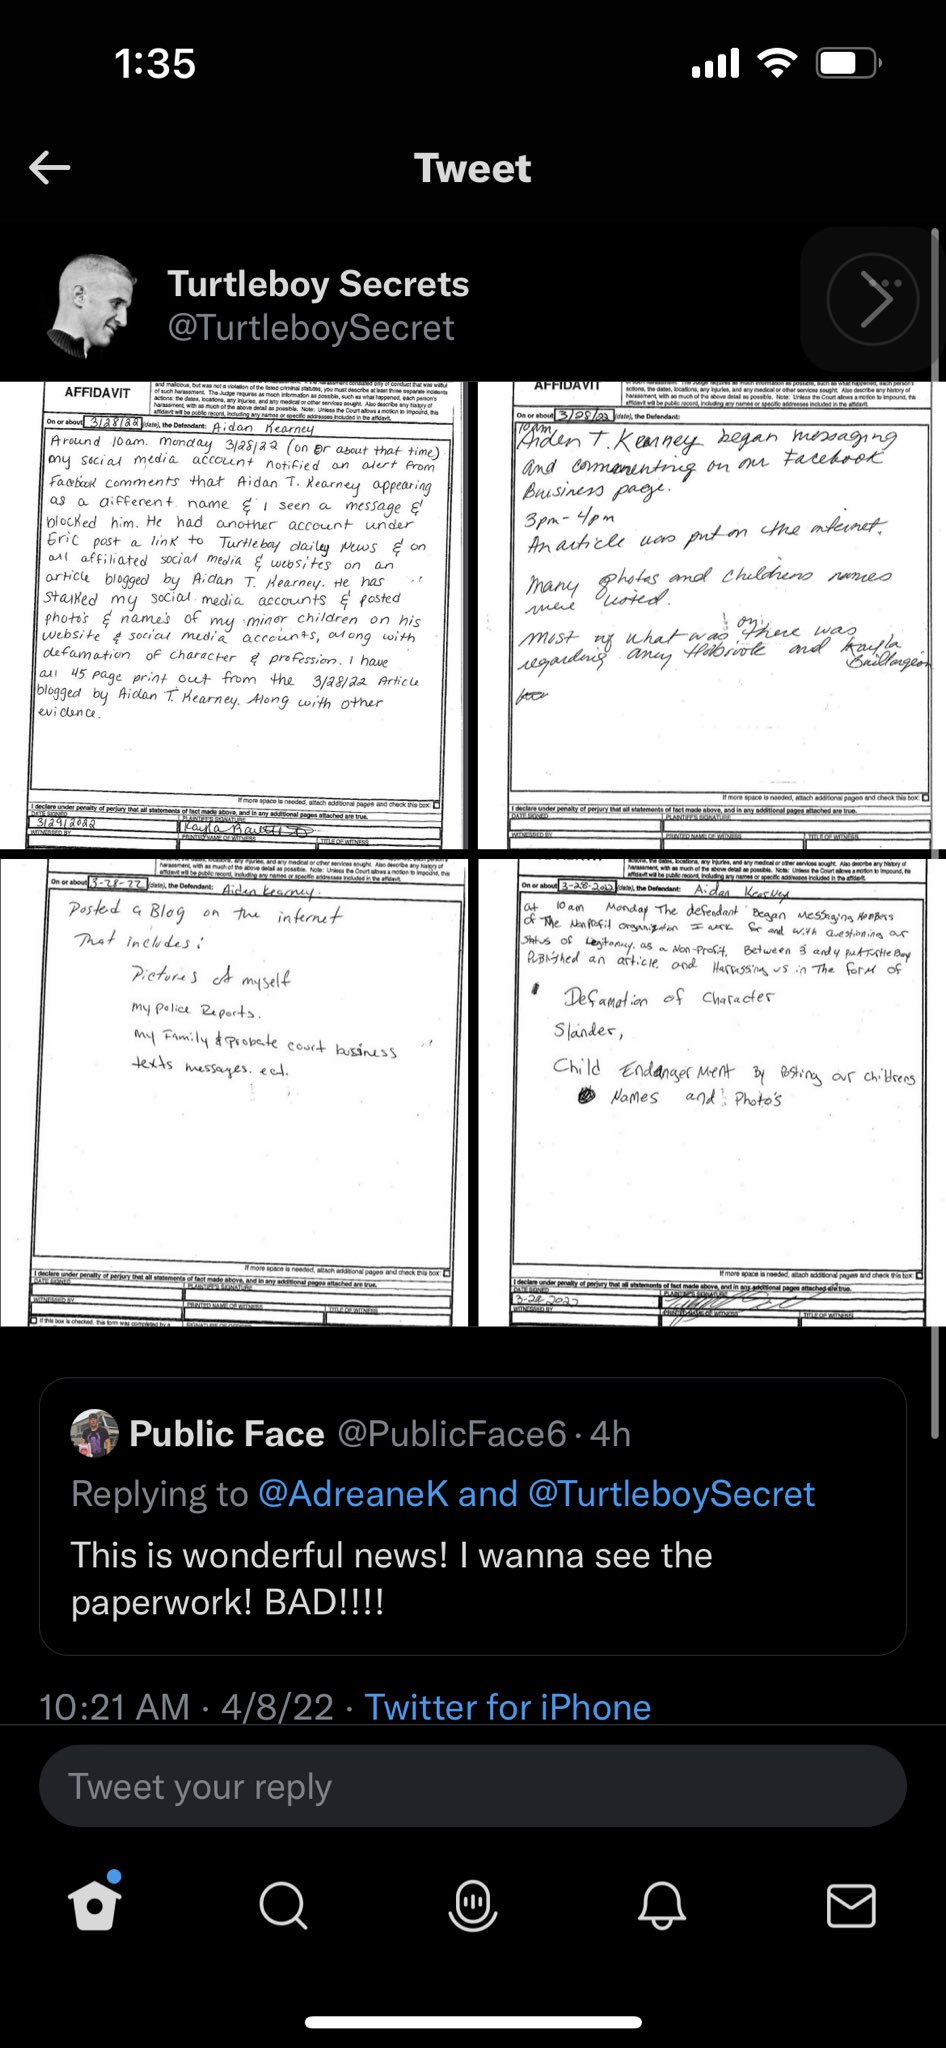 1:35
Tweet
Turtleboy Secrets
@TurtleboySecret
and malicious, but was not a violation of the listed criminal statutes, you must describe at least three separate incidents
of such harassment. The Judge requires as much information as possible, such as what happened, each person's
actions, the dates, locations, any injuries, and any medical or other services sought. Also describe any history of
harassment, with as much of the above detail as possible. Note: Unless the Court allows a motion to impound, this
affidavit will be public record, including any names or specific addresses included in the affidavit.
AFFIDAVIT
On or about 3/28/22 (date), the Defendant: Aidan Kearney
Around 10am. Monday 3/28/22 (on or about that time)
my social media account notified an alert from
Facebook comments that Aidan T. Kearney appearing
as a different name & I seen a message &
blocked him. He had another account under
Eric post a link to Turtleboy daily News & on
all affiliated social media & websites on an
article blogged by Aidan T. Kearney. He has
stalked my social media accounts & posted
photo's & name's of my minor children on his
website & social media accounts, along with
defamation of character & profession. I have
all 45 page print out from the 3/28/22 Article
blogged by Aidan T. Kearney. Along with other
evidence.
If more space is needed, attach additional pages and check this box:
I declare under penalty of perjury that all statements of fact made above, and in any additional pages attached are true.
DATE SIGNED PLAINTIFF'S SIGNATURE
3/29/2022
WITNESSED BY PRINTED NAME OF WITNESS TITLE OF WITNESS
AFFIDAVIT
actions, the dates, locations, any injuries, and any medical or other services sought. Also describe any history of
harassment, with as much of the above detail as possible. Note: Unless the Court allows a motion to impound, this
affidavit will be public record, including any names or specific addresses included in the affidavit.
On or about 3/28/22 (date), the Defendant:
10am
Aiden T. Kearney began messaging
and commenting on our Facebook
Buisiness page.
3pm-4pm
An article was put on the internet.
Many photos and childrens names
were listed.
Most of what was on there was
regarding and Kayla
If more space is needed, attach additional pages and check this box:
I declare under penalty of perjury that all statements of fact made above, and in any additional pages attached are true.
DATE SIGNED PLAINTIFF'S SIGNATURE
WITNESSED BY PRINTED NAME OF WITNESS TITLE OF WITNESS
actions, the dates, locations, any injuries, and any medical or other services sought. Also describe any history of
harassment, with as much of the above detail as possible. Note: Unless the Court allows a motion to impound, this
affidavit will be public record, including any names or specific addresses included in the affidavit.
On or about 3-28-22 (date), the Defendant: Aiden Kearney.
Posted a Blog on the internet
That includes:
Pictures of myself
my Police Reports.
my Family & probate court business
texts messages. ect.
If more space is needed, attach additional pages and check this box:
I declare under penalty of perjury that all statements of fact made above, and in any additional pages attached are true.
DATE SIGNED PLAINTIFF'S SIGNATURE
WITNESSED BY PRINTED NAME OF WITNESS TITLE OF WITNESS
If this box is checked, this form was completed by a
actions, the dates, locations, any injuries, and any medical or other services sought. Also describe any history of
harassment, with as much of the above detail as possible. Note: Unless the Court allows a motion to impound, this
affidavit will be public record, including any names or specific addresses included in the affidavit.
On or about 3-28-2022 (date), the Defendant: Aidan Kearney
at 10am Monday The defendant Began Messaging Members
of The Nonprofit organization I work for and with Questioning our
Status of Legitimacy as a Non-Profit. Between 3 and 4 PM TurtleBoy
Published an article and Harrassing us in The Form of
Defamation of Character
Slander,
Child Endangerment By Posting our childrens
Names and Photo's
If more space is needed, attach additional pages and check this box:
I declare under penalty of perjury that all statements of fact made above, and in any additional pages attached are true.
DATE SIGNED PLAINTIFF'S SIGNATURE
3-28-2022
WITNESSED BY PRINTED NAME OF WITNESS TITLE OF WITNESS
Public Face @PublicFace6 · 4h
Replying to @AdreaneK and @TurtleboySecret
This is wonderful news! I wanna see the
paperwork! BAD!!!!
10:21 AM · 4/8/22 · Twitter for iPhone
Tweet your reply